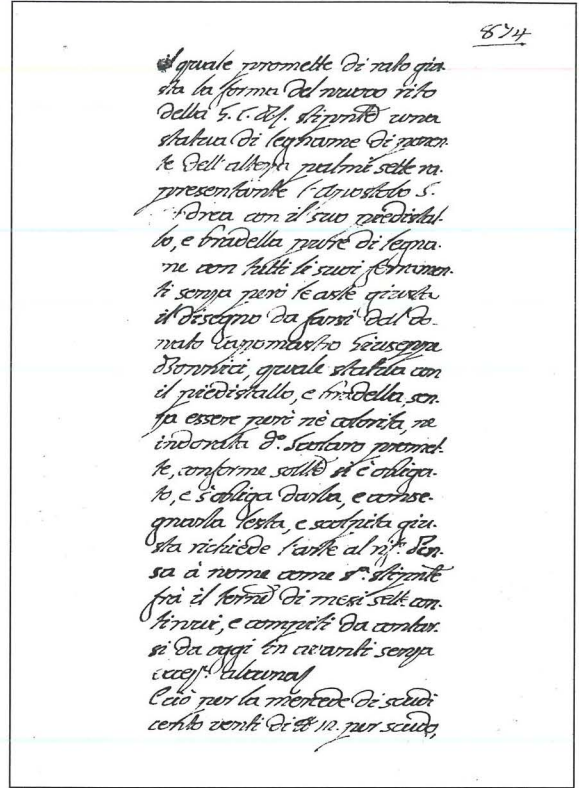 874
il quale promette di rato giu-
sta la forma del nuovo rito
della G. C. stipnte una
statua di legname di
te dell'altezza palmi sette ra-
presentante l'Apostolo S.
Andrea con il suo piedistal-
lo, e bradella pure di legna-
me con tutti li suoi ferramen-
ti senza però le aste giusta
il disegno da farsi dal do-
nato Capomastro Giuseppe
Bonnici, quale statua con
il piedistallo, e bradella, sen-
za essere però nè colorita, ne
indorata do. Scolaro promet-
te, conforme sollte si è obliga-
to, e s'obliga darla, e conse-
gnarla lesta, e scolpita giu-
sta richiede l'arte al
sa à nome come sa. stipnte
frà il termе di mesi sette con-
tinui, e compiti da contar-
si da oggi in avanti senza
eccezz. alcuna
E ciò per la mercede di scudi
cento venti di 12. per scudo,